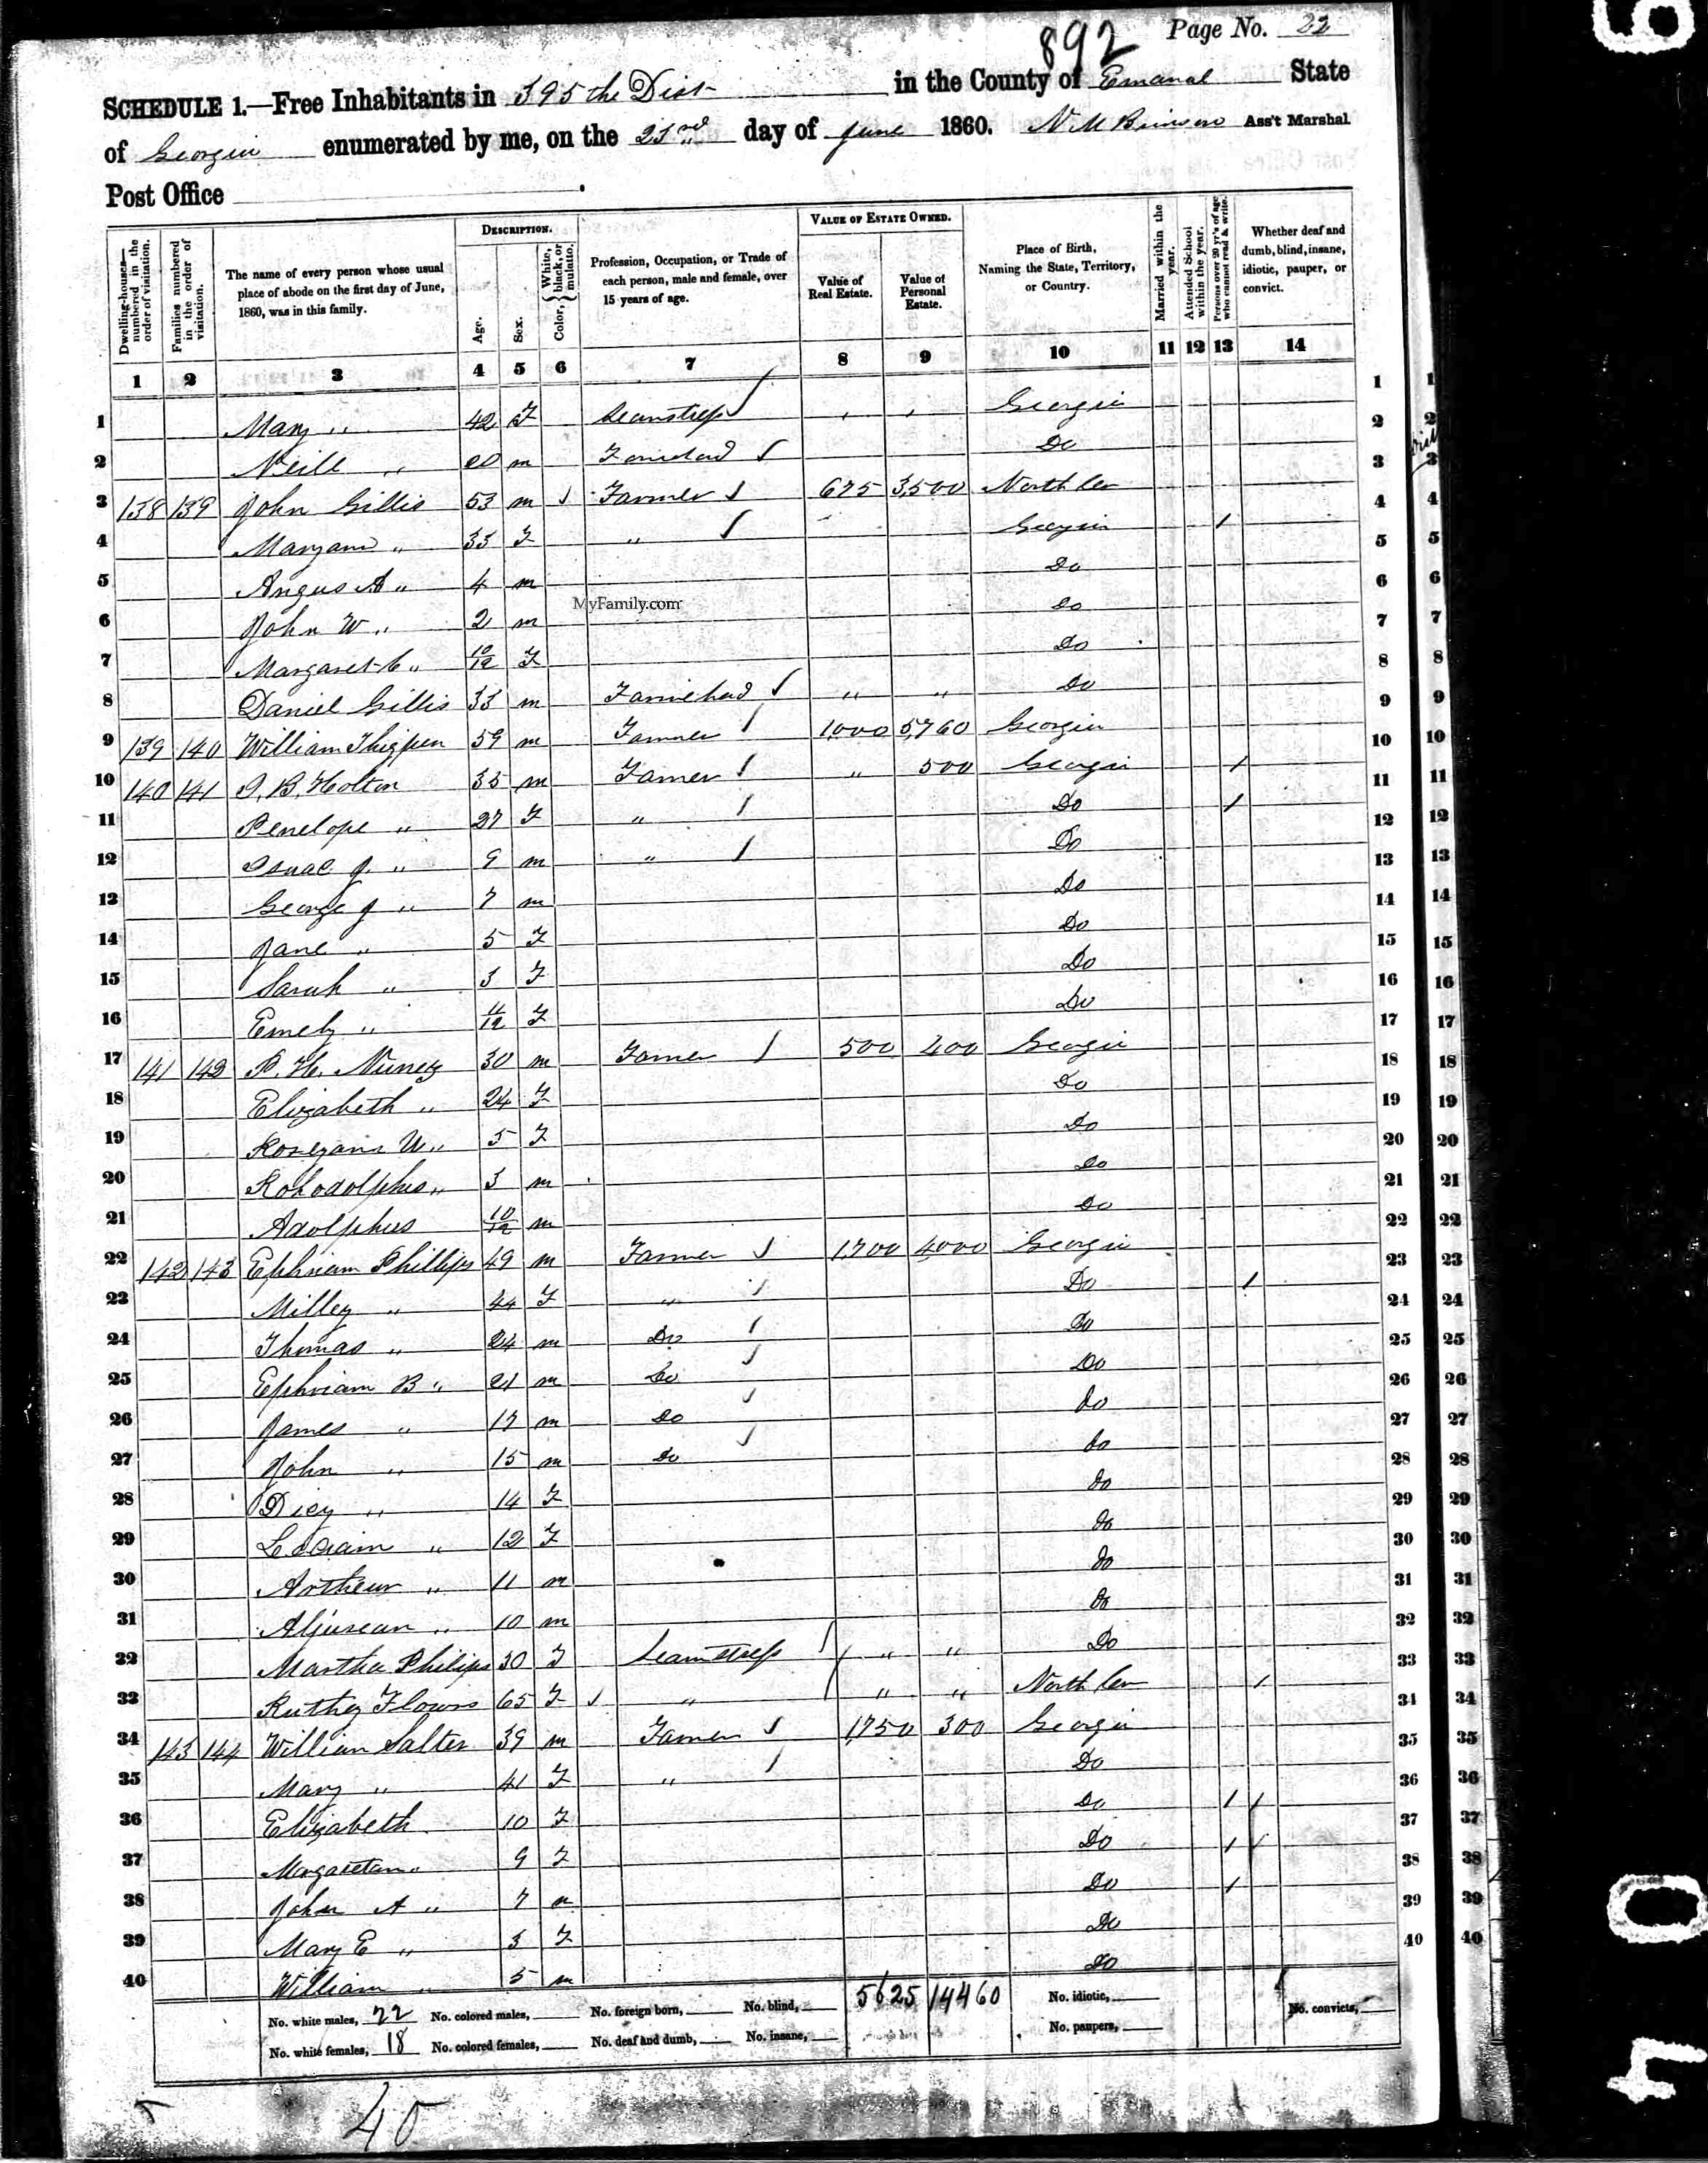 892 Page No. 22
SCHEDULE 1.—Free Inhabitants in 395 the Dist in the County of Emanal State
of Georgia enumerated by me, on the 23rd day of June 1860. N M Brinson Ass't Marshal
Post Office
Dwelling-houses—numbered in the order of visitation. Families numbered in the order of visitation. The name of every person whose usual place of abode on the first day of June, 1860, was in this family. DESCRIPTION. Age. Sex. Color, { White, black, or mulatto. Profession, Occupation, or Trade of each person, male and female, over 15 years of age. VALUE OF ESTATE OWNED. Value of Real Estate. Value of Personal Estate. Place of Birth, Naming the State, Territory, or Country. Married within the year. Attended School within the year. Persons over 20 yr's of age who cannot read & write. Whether deaf and dumb, blind, insane, idiotic, pauper, or convict.
1 2 3 4 5 6 7 8 9 10 11 12 13 14
1 Mary " 42 F Seamstress Georgia 1
2 Neill " 20 m Do 2
3 138 139 John Gillis 53 m Farmer 675 3,500 North Ca 3
4 Maryann " 33 F " Georgia / 4
5 Angus A " 4 m Do 5
MyFamily.com
6 John W " 2 m Do 6
7 Margaret C " 10/12 F Do 7
8 Daniel Gillis 33 m " " Do 8
9 139 140 William Thigpen 59 m Farmer 1,000 5,760 Georgia 9
10 140 141 I. B. Holton 35 m Farmer " 500 Georgia / 10
11 Penelope " 27 F " Do / 11
12 Isaac J. " 9 m " Do 12
13 George J " 7 m Do 13
14 Jane " 5 F Do 14
15 Sarah " 3 F Do 15
16 Emely " 11/12 F Do 16
17 141 142 P. H. Nunez 30 m Farmer 500 400 Georgia 17
18 Elizabeth " 24 F Do 18
19 5 F Do 19
20 Rohodolphus " 3 m Do 20
21 Adolphus 10/12 m Do 21
22 142 143 Ephriam Phillips 49 m Farmer 1,700 4,000 Georgia 22
23 Milley " 44 F " Do / 23
24 Thomas " 24 m Do Do 24
25 Ephriam B " 21 m Do Do 25
26 James " 17 m Do do 26
27 John " 15 m Do do 27
28 Dicy " 14 F do 28
29 " 12 F do 29
30 Artheur " 11 m do 30
31 " 10 m do 31
32 Martha Philips 30 F Seamstress " " Do 32
33 Ruthey Flowrs 65 F " " " North Ca / 33
34 143 144 William Salter 39 m Farmer 1,750 300 Georgia 34
35 Mary " 41 F " Do 35
36 Elizabeth 10 F Do / / 36
37 Margaretann " 9 F Do / / 37
38 John A " 7 m Do / 38
39 Mary E " 5 F Do 39
40 William " 5 m Do 40
No. white males, 22 No. colored males, No. foreign born, No. blind, 5625 14460 No. idiotic, No. convicts,
No. white females, 18 No. colored females, No. deaf and dumb, No. insane, No. paupers,
40